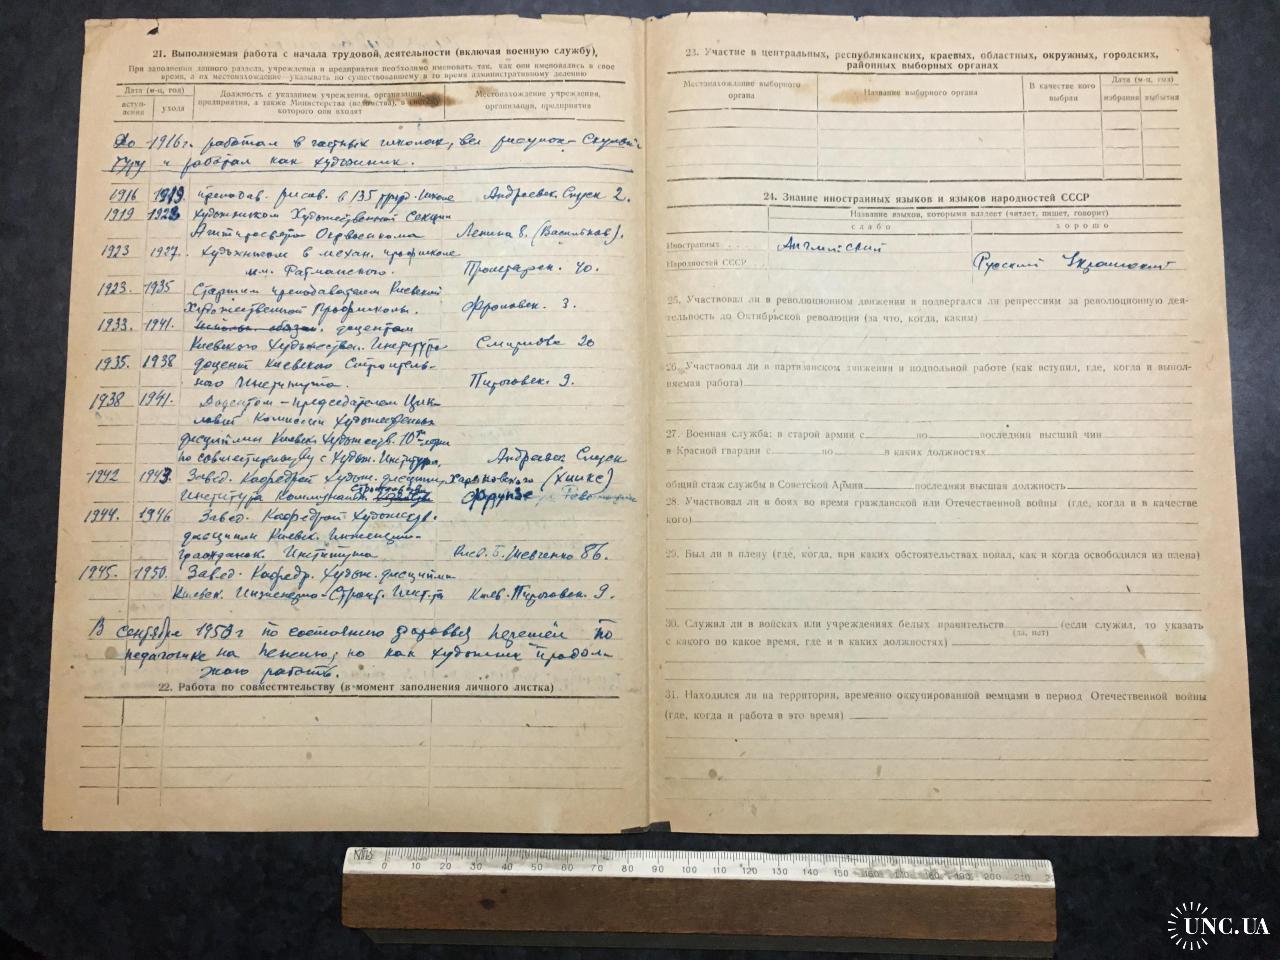 21. Выполняемая работа с начала трудовой деятельности (включая военную службу),
При заполнении данного раздела, учреждения и предприятия необходимо именовать так, как они именовались в свое
время, а их местонахождение указывать по существовавшему в то время административному делению
Дата (м-ц, год)
вступ-
ления
ухода
Должность с указанием учреждения, организации,
предприятия, а также Министерства (ведомства), в систему
которого они входят
Местонахождение учреждения,
организации, предприятия
До 1916 г. работал в частных школах, вел рисунок
и работал как художник.
1916 1919 преподав. рисов. в 135 труд. школе Андреевск. Спуск 2.
1919 1923 художником Художественной Секции
Окрвоенкома Ленина 8. (Васильков).
1923 1927. художником в механ. профшколе
им. Ратманского. Пролетарск. 40.
1923. 1935 Старшим преподавателем Киевской
Художественной Профшколы. 3.
1933. 1941. доцентом
Киевского Художествен. Института Смирнова 20
1935. 1938 доцент Киевского Строитель-
ного Института. Пироговск. 9.
1938 1941. Доцентом - председателем Цик-
ловой Комиссии Художественных
дисциплин Киевск. Художеств. 10ти-летки
по совместительству с Худож. Института. Андреевск Спуск
1942 1943. Завед. Кафедрой Худож. дисциплин Харьковского (ХИИКС)
Института Коммунальн. Строительства Фрунзе
1944. 1946 Завед. Кафедрой Художеств.
дисциплин Киевск. Инженерно-
гражданск. Института Киев. Б. Шевченко 8б.
1945. 1950. Завед. Кафедр. Худож. дисциплин
Киевск. Инженерно-Строит. Инст-та Киев. Пироговск. 9.
В сентябре 1950 г по состоянию здоровья перешел по
педагогике на пенсию, но как художник продол
жаю работать.
22. Работа по совместительству (в момент заполнения личного листка)
23. Участие в центральных, республиканских, краевых, областных, окружных, городских,
районных выборных органах
Местонахождение выборного
органа
Название выборного органа
В качестве кого
выбран
Дата (м-ц, год)
избрания
выбытия
24. Знание иностранных языков и языков народностей СССР
Название языков, которыми владеет (читает, пишет, говорит)
слабо
хорошо
Иностранных Английский
Народностей СССР Русский Украинский
25. Участвовал ли в революционном движении и подвергался ли репрессиям за революционную дея-
тельность до Октябрьской революции (за что, когда, каким)
26. Участвовал ли в партизанском движении и подпольной работе (как вступил, где, когда и выпол-
няемая работа)
27. Военная служба: в старой армии с по последний высший чин
в Красной гвардии с по в каких должностях
общий стаж службы в Советской Армии последняя высшая должность
28. Участвовал ли в боях во время гражданской или Отечественной войны (где, когда и в качестве
кого)
29. Был ли в плену (где, когда, при каких обстоятельствах попал, как и когда освободился из плена)
30. Служил ли в войсках или учреждениях белых правительств (если служил, то указать
(да, нет)
с какого по какое время, где и в каких должностях)
31. Находился ли на территории, временно оккупированной немцами в период Отечественной войны
(где, когда и работа в это время)
0 10 20 30 40 50 60 70 80 90 100 110 120 130 140 150 160 170 180 190 200 210
UNC.UA